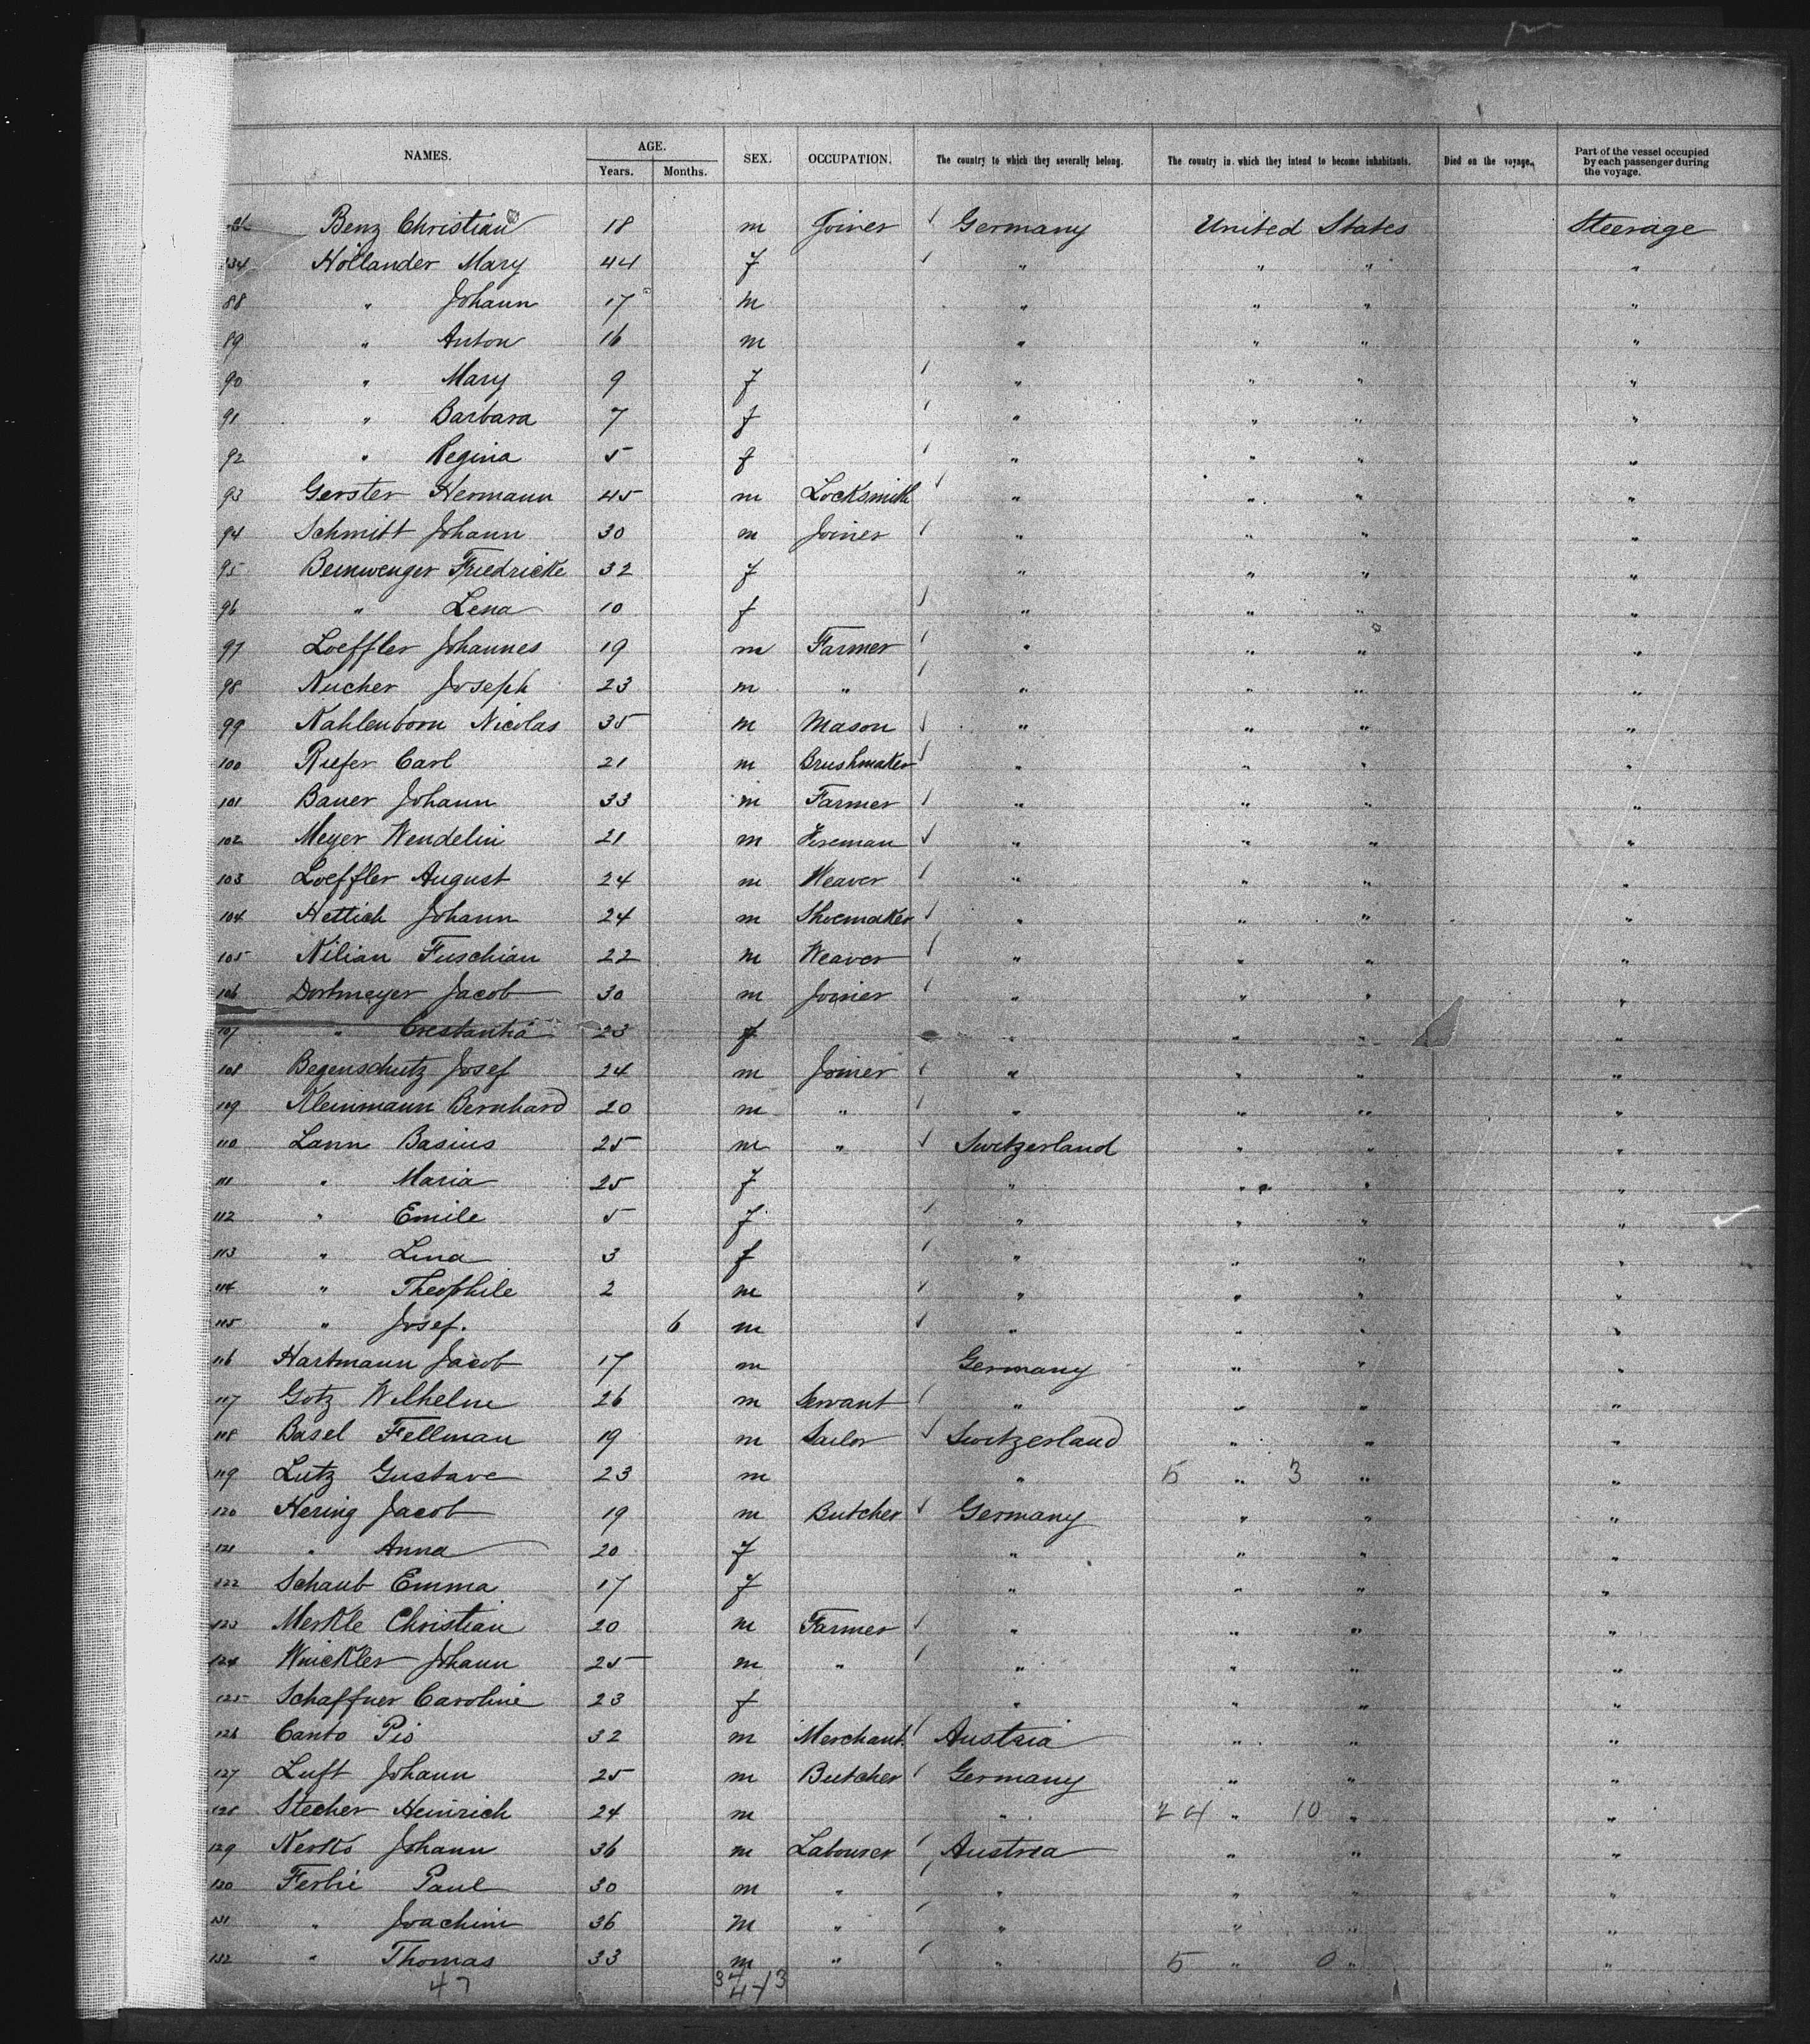 NAMES. AGE. SEX. OCCUPATION. The country to which they severally belong. The country in which they intend to become inhabitants. Died on the voyage. Part of the vessel occupied by each passenger during the voyage.
Years. Months.
Benz Christian 18 m Joiner Germany United States Steerage
Hollander Mary 44 f " " " "
88 " Johann 17 m " " " "
89 " Anton 16 m " " " "
90 " Mary 9 f " " " "
91 " Barbara 7 f " " " "
92 " Regina 5 f " " " "
93 Gerster Hermann 45 m Locksmith " " " "
94 Schmitt Johann 30 m Joiner " " " "
95 Friedricke 32 f " " " "
96 " Lena 10 f " " " "
97 Loeffler Johannes 19 m Farmer " " " "
98 Nucher Joseph 23 m " " " " "
99 Kahlenborn Nicolas 35 m Mason " " " "
100 Riefer Carl 21 m Brushmaker " " " "
101 Bauer Johann 33 m Farmer " " " "
102 Meyer Wendelin 21 m Fireman " " " "
103 Loeffler August 24 m Weaver " " " "
104 Hettich Johann 24 m Shoemaker " " " "
105 Kilian Fuschian 22 m Weaver " " " "
106 Dortmeyer Jacob 30 m Joiner " " " "
107 " Crestantia 23 f " " " "
108 Begenschutz Josef 24 m Joiner " " " "
109 Kleinmann Bernhard 20 m " " " " "
110 Lann Basius 25 m " Switzerland " " "
111 " Maria 25 f " " " "
112 " Emile 5 f " " " "
113 " Lina 3 f " " " "
114 " Theophile 2 m " " " "
115 " Josef. 6 m " " " "
116 Hartmann Jacob 17 m Germany " " "
117 Gotz Wilhelm 26 m Servant " " " "
118 Basel Fellman 19 m Sailor Switzerland " " "
119 Lutz Gustave 23 m " 5 " 3 " "
120 Hering Jacob 19 m Butcher Germany " " "
121 " Anna 20 f " " " "
122 Schaub Emma 17 f " " " "
123 Merkle Christian 20 m Farmer " " " "
124 Winckler Johann 25 m " " " " "
125 Schaffner Caroline 23 f " " " "
126 Canto Pio 32 m Merchant. Austria " " "
127 Luft Johann 25 m Butcher Germany " " "
128 Stecher Heinrich 24 m " 24 " 10 " "
129 Johann 36 m Labourer Austria " " "
130 Paul 30 m " " " " "
131 " Joachim 36 m " " " " "
132 " Thomas 33 m " " 5 " 0 " "
47 34 13
47